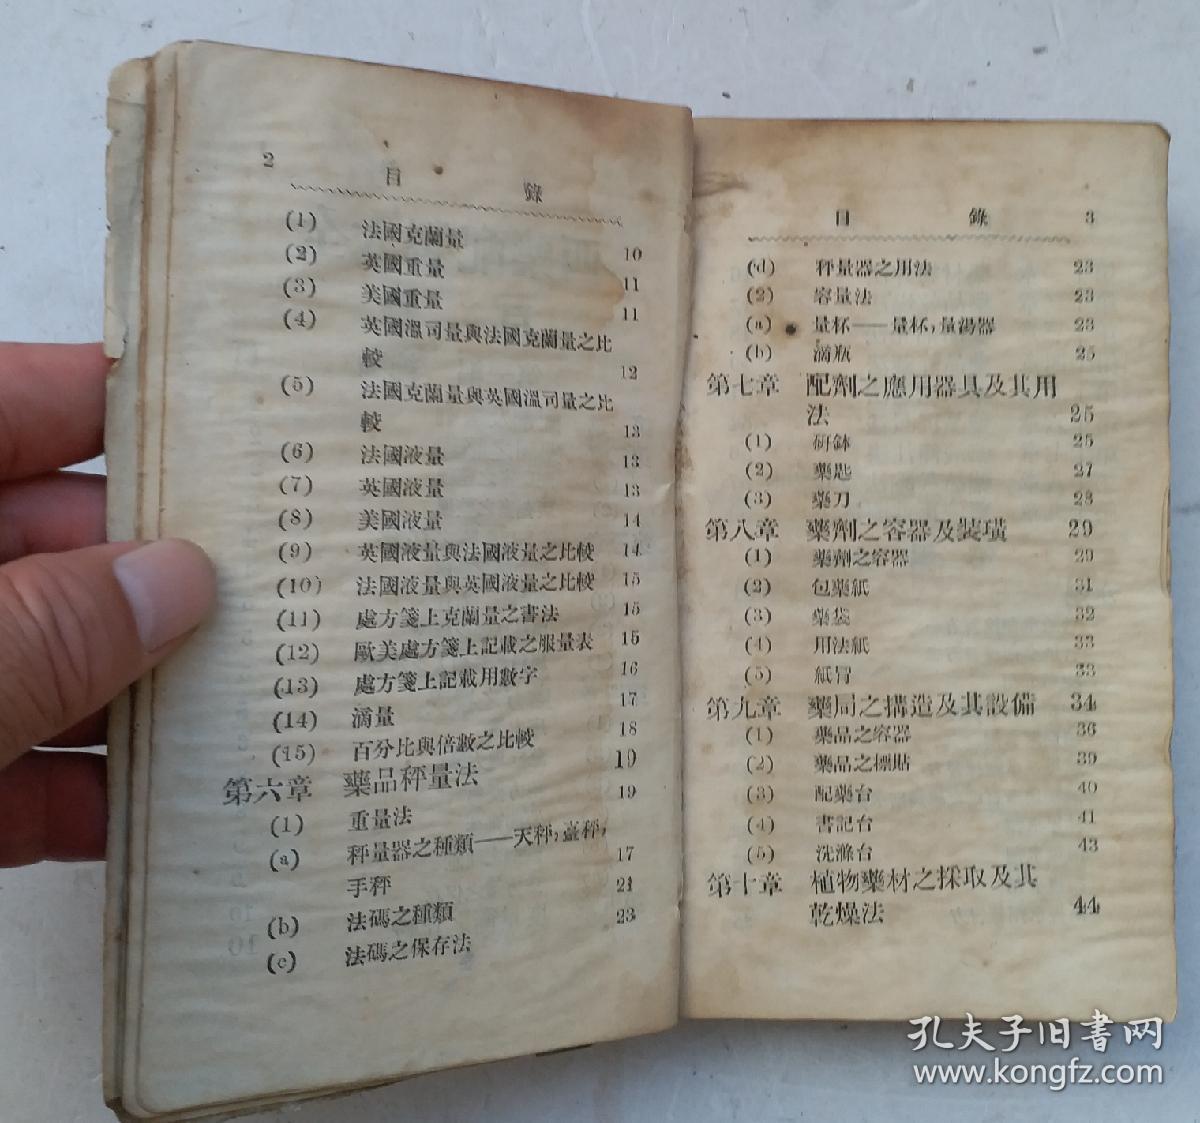 2 目 錄
(1) 法國克蘭量 10
(2) 英國重量 11
(3) 美國重量 11
(4) 英國溫司量與法國克蘭量之比
較 12
(5) 法國克蘭量與英國溫司量之比
較 13
(6) 法國液量 13
(7) 英國液量 13
(8) 美國液量 14
(9) 英國液量與法國液量之比較 14
(10) 法國液量與英國液量之比較 15
(11) 處方箋上克蘭量之書法 15
(12) 歐美處方箋上記載之服量表 15
(13) 處方箋上記載用數字 16
(14) 滴量 17
(15) 百分比與倍數之比較 18
第六章 藥品秤量法 19
(1) 重量法 19
(a) 秤量器之種類——天秤，盞秤，
手秤 17
(b) 法碼之種類 21
(c) 法碼之保存法 23
目 錄 3
(d) 秤量器之用法 23
(2) 容量法 23
(a) 量杯——量杯，量湯器 23
(b) 滴瓶 25
第七章 配劑之應用器具及其用
法 25
(1) 研鉢 25
(2) 藥匙 27
(3) 藥刀 28
第八章 藥劑之容器及裝璜 29
(1) 藥劑之容器 29
(2) 包藥紙 31
(3) 藥袋 32
(4) 用法紙 33
(5) 紙冒 33
第九章 藥局之構造及其設備 34
(1) 藥品之容器 36
(2) 藥品之標貼 39
(3) 配藥台 40
(4) 書記台 41
(5) 洗滌台 43
第十章 植物藥材之採取及其
乾燥法 44
孔夫子旧书网
www.kongfz.com